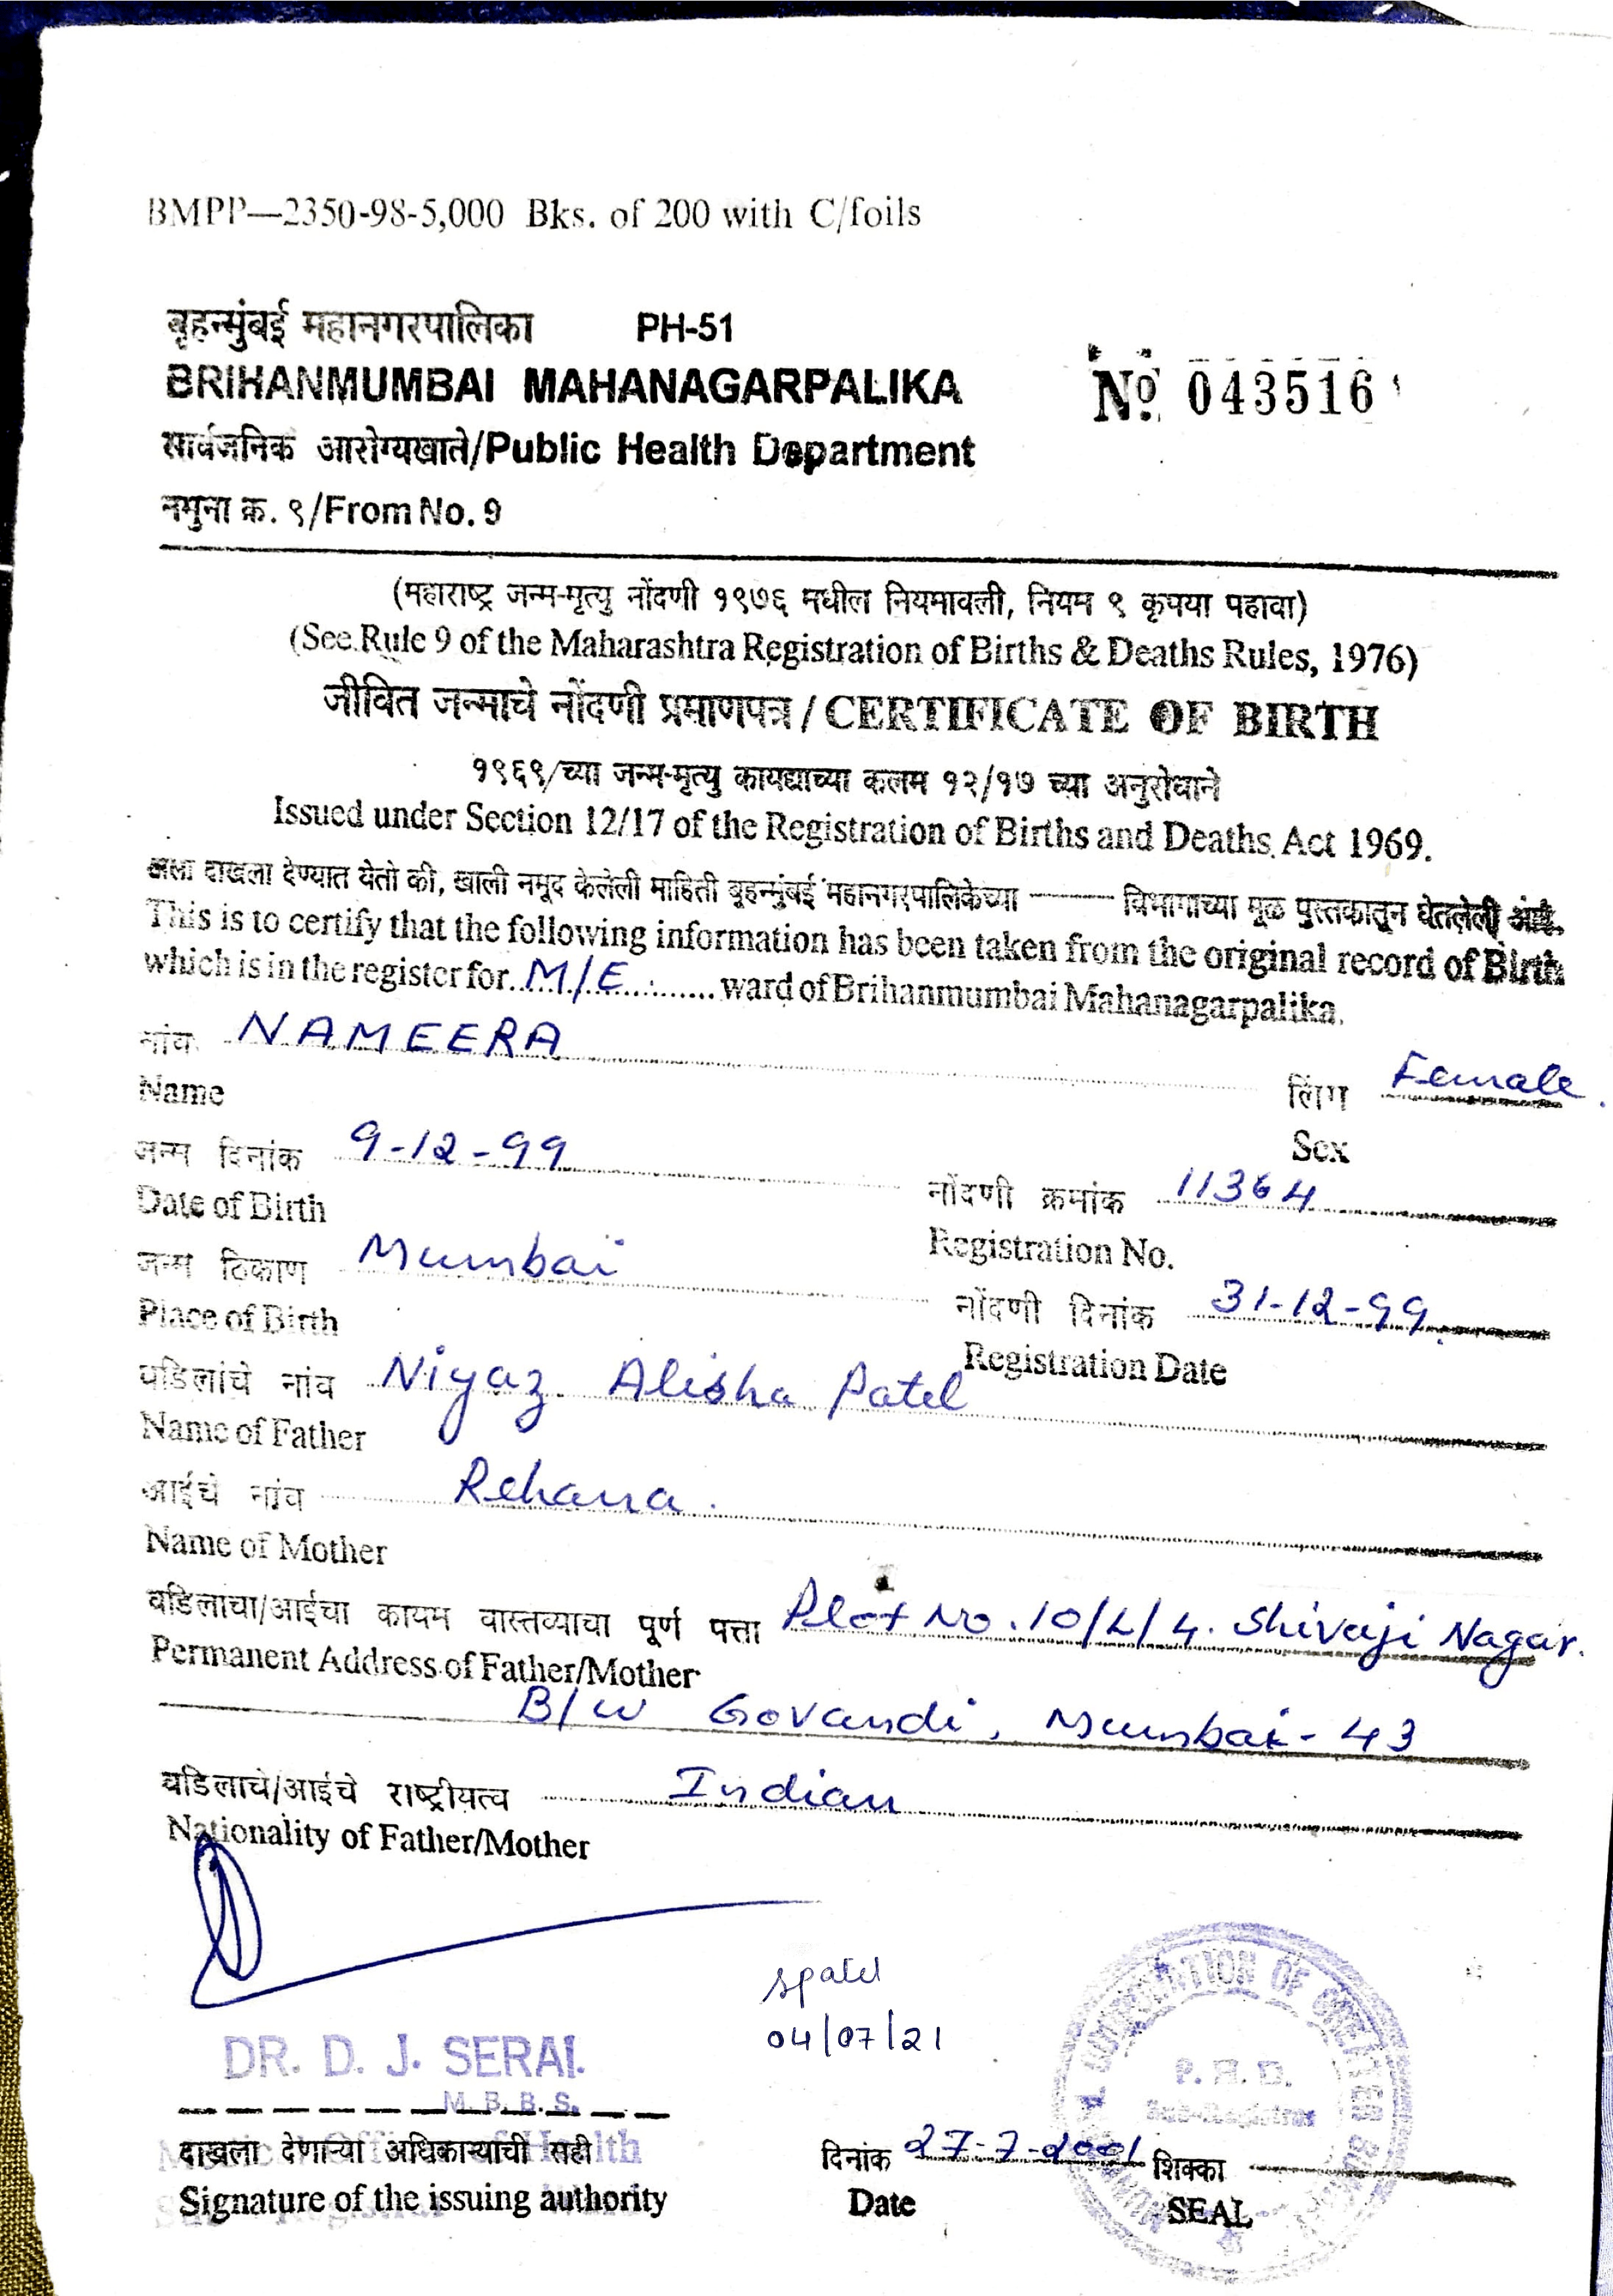 BMPP—2350-98-5,000 Bks. of 200 with C/foils
बृहन्मुंबई महानगरपालिका PH-51
BRIHANMUMBAI MAHANAGARPALIKA
No. 043516
सार्वजनिक आरोग्यखाते/Public Health Department
नमुना क्र. ९/From No. 9
(महाराष्ट्र जन्म-मृत्यु नोंदणी १९७६ मधील नियमावली, नियम ९ कृपया पहावा)
(See Rule 9 of the Maharashtra Registration of Births & Deaths Rules, 1976)
जीवित जन्माचे नोंदणी प्रमाणपत्र / CERTIFICATE OF BIRTH
१९६९/च्या जन्म-मृत्यु कायद्याच्या कलम १२/१७ च्या अनुरोधाने
Issued under Section 12/17 of the Registration of Births and Deaths Act 1969.
असा दाखला देण्यात येतो की, खाली नमूद केलेली माहिती बृहन्मुंबई महानगरपालिकेच्या —— विभागाच्या मूळ पुस्तकातून घेतलेली आहे.
This is to certify that the following information has been taken from the original record of Birth
which is in the register for M/E ward of Brihanmumbai Mahanagarpalika.
नांव NAMEERA लिंग Female
Name Sex
जन्म दिनांक 9-12-99 नोंदणी क्रमांक 11364
Date of Birth Registration No.
जन्म ठिकाण Mumbai नोंदणी दिनांक 31-12-99
Place of Birth Registration Date
वडिलांचे नांव Niyaz Alisha Patel
Name of Father
आईचे नांव Rehana
Name of Mother
वडिलाचा/आईचा कायम वास्तव्याचा पूर्ण पत्ता Plot No. 10/L/4. Shivaji Nagar.
Permanent Address of Father/Mother
B/W Govandi, Mumbai - 43
वडिलाचे/आईचे राष्ट्रीयत्व Indian
Nationality of Father/Mother
spatel
04/07/21
DR. D. J. SERAI.
M. B. B. S.
P. H. D.
Sub-Registrar
दाखला देणाऱ्या अधिकाऱ्याची सही दिनांक 27-7-2001 शिक्का
Signature of the issuing authority Date SEAL